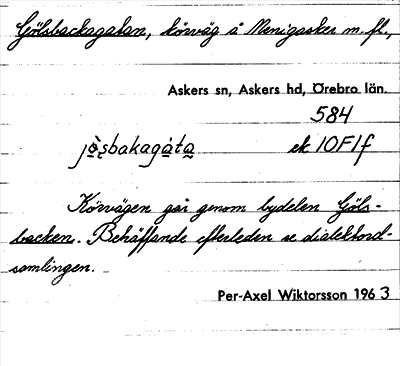 Gölsbackagatan, körväg å Menigasker m. fl.,
Askers sn, Askers hd, Örebro län.
584
jòsbakagàta ek 10F1f
Körvägen går genom bydelen Göls-
backen. Behäffande efterleden se dialektord-
samlingen.
Per-Axel Wiktorsson 1963